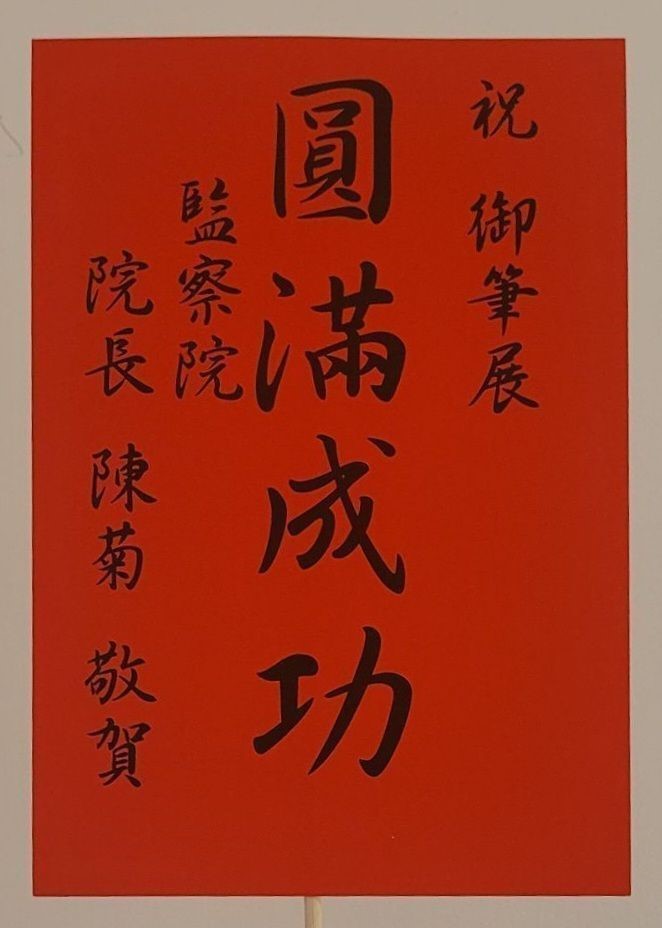 祝 御筆展
圓滿成功
監察院
院長 陳菊 敬賀